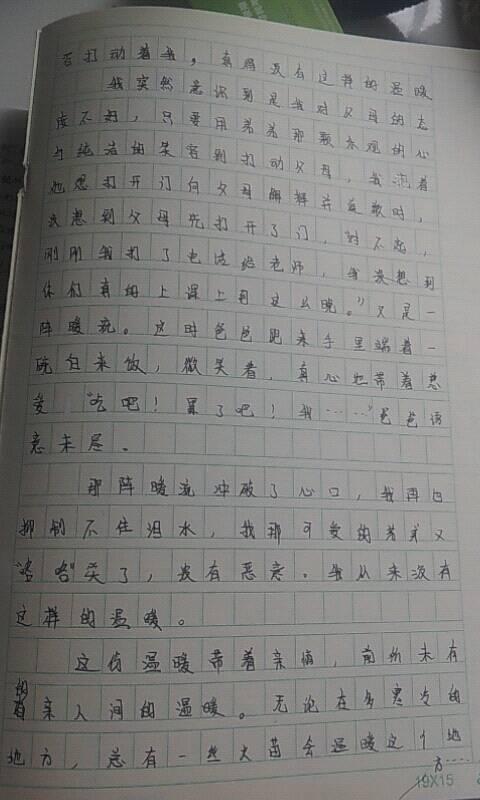 否打动着我，真的没有这样的温暖
我突然意识到是我对父母的态
度不好，只要用弟弟那颗乐观的心
与纯洁的笑容别打动父母，我流着
泪想打开门向父母解释并道歉时，
没想到父母先打开了门，对不起，
刚刚我打了电话给老师，我没想到
你们真的上课上到这么晚。”又是一
阵暖流。这时爸爸跑来手里端着一
碗白米饭，微笑着，真心地带着慈
爱“吃吧！累了吧！我……”爸爸语
意未尽。
那阵暖流冲破了心口，我再也
抑制不住泪水，我那可爱的弟弟又
“咯咯”笑了，没有恶意。我从来没有
这样的温暖。
这份温暖带着亲情，前所未有
的亲人间的温暖。无论在多寒冷的
地方，总有一丝火苗会温暖这个地
方……
19X15